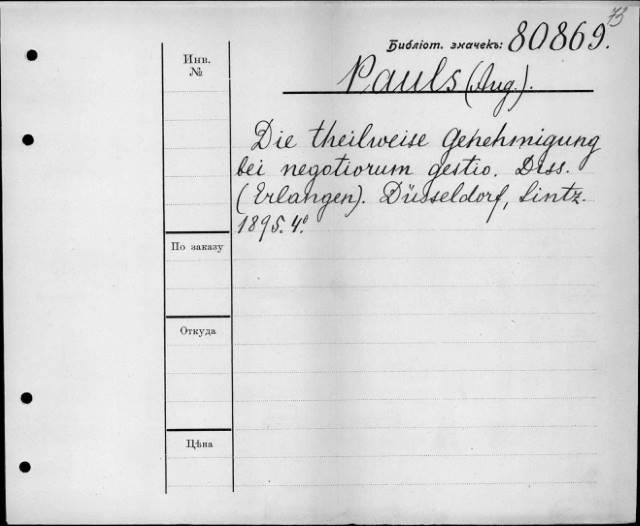 73
Библіот. значекъ: 80869.
Инв.
№
Pauls (Aug.).
Die theilweise Genehmigung
bei negotiorum gestio. Diss.
(Erlangen). Düsseldorf, Lintz.
1895. 4º
По заказу
Откуда
Цѣна